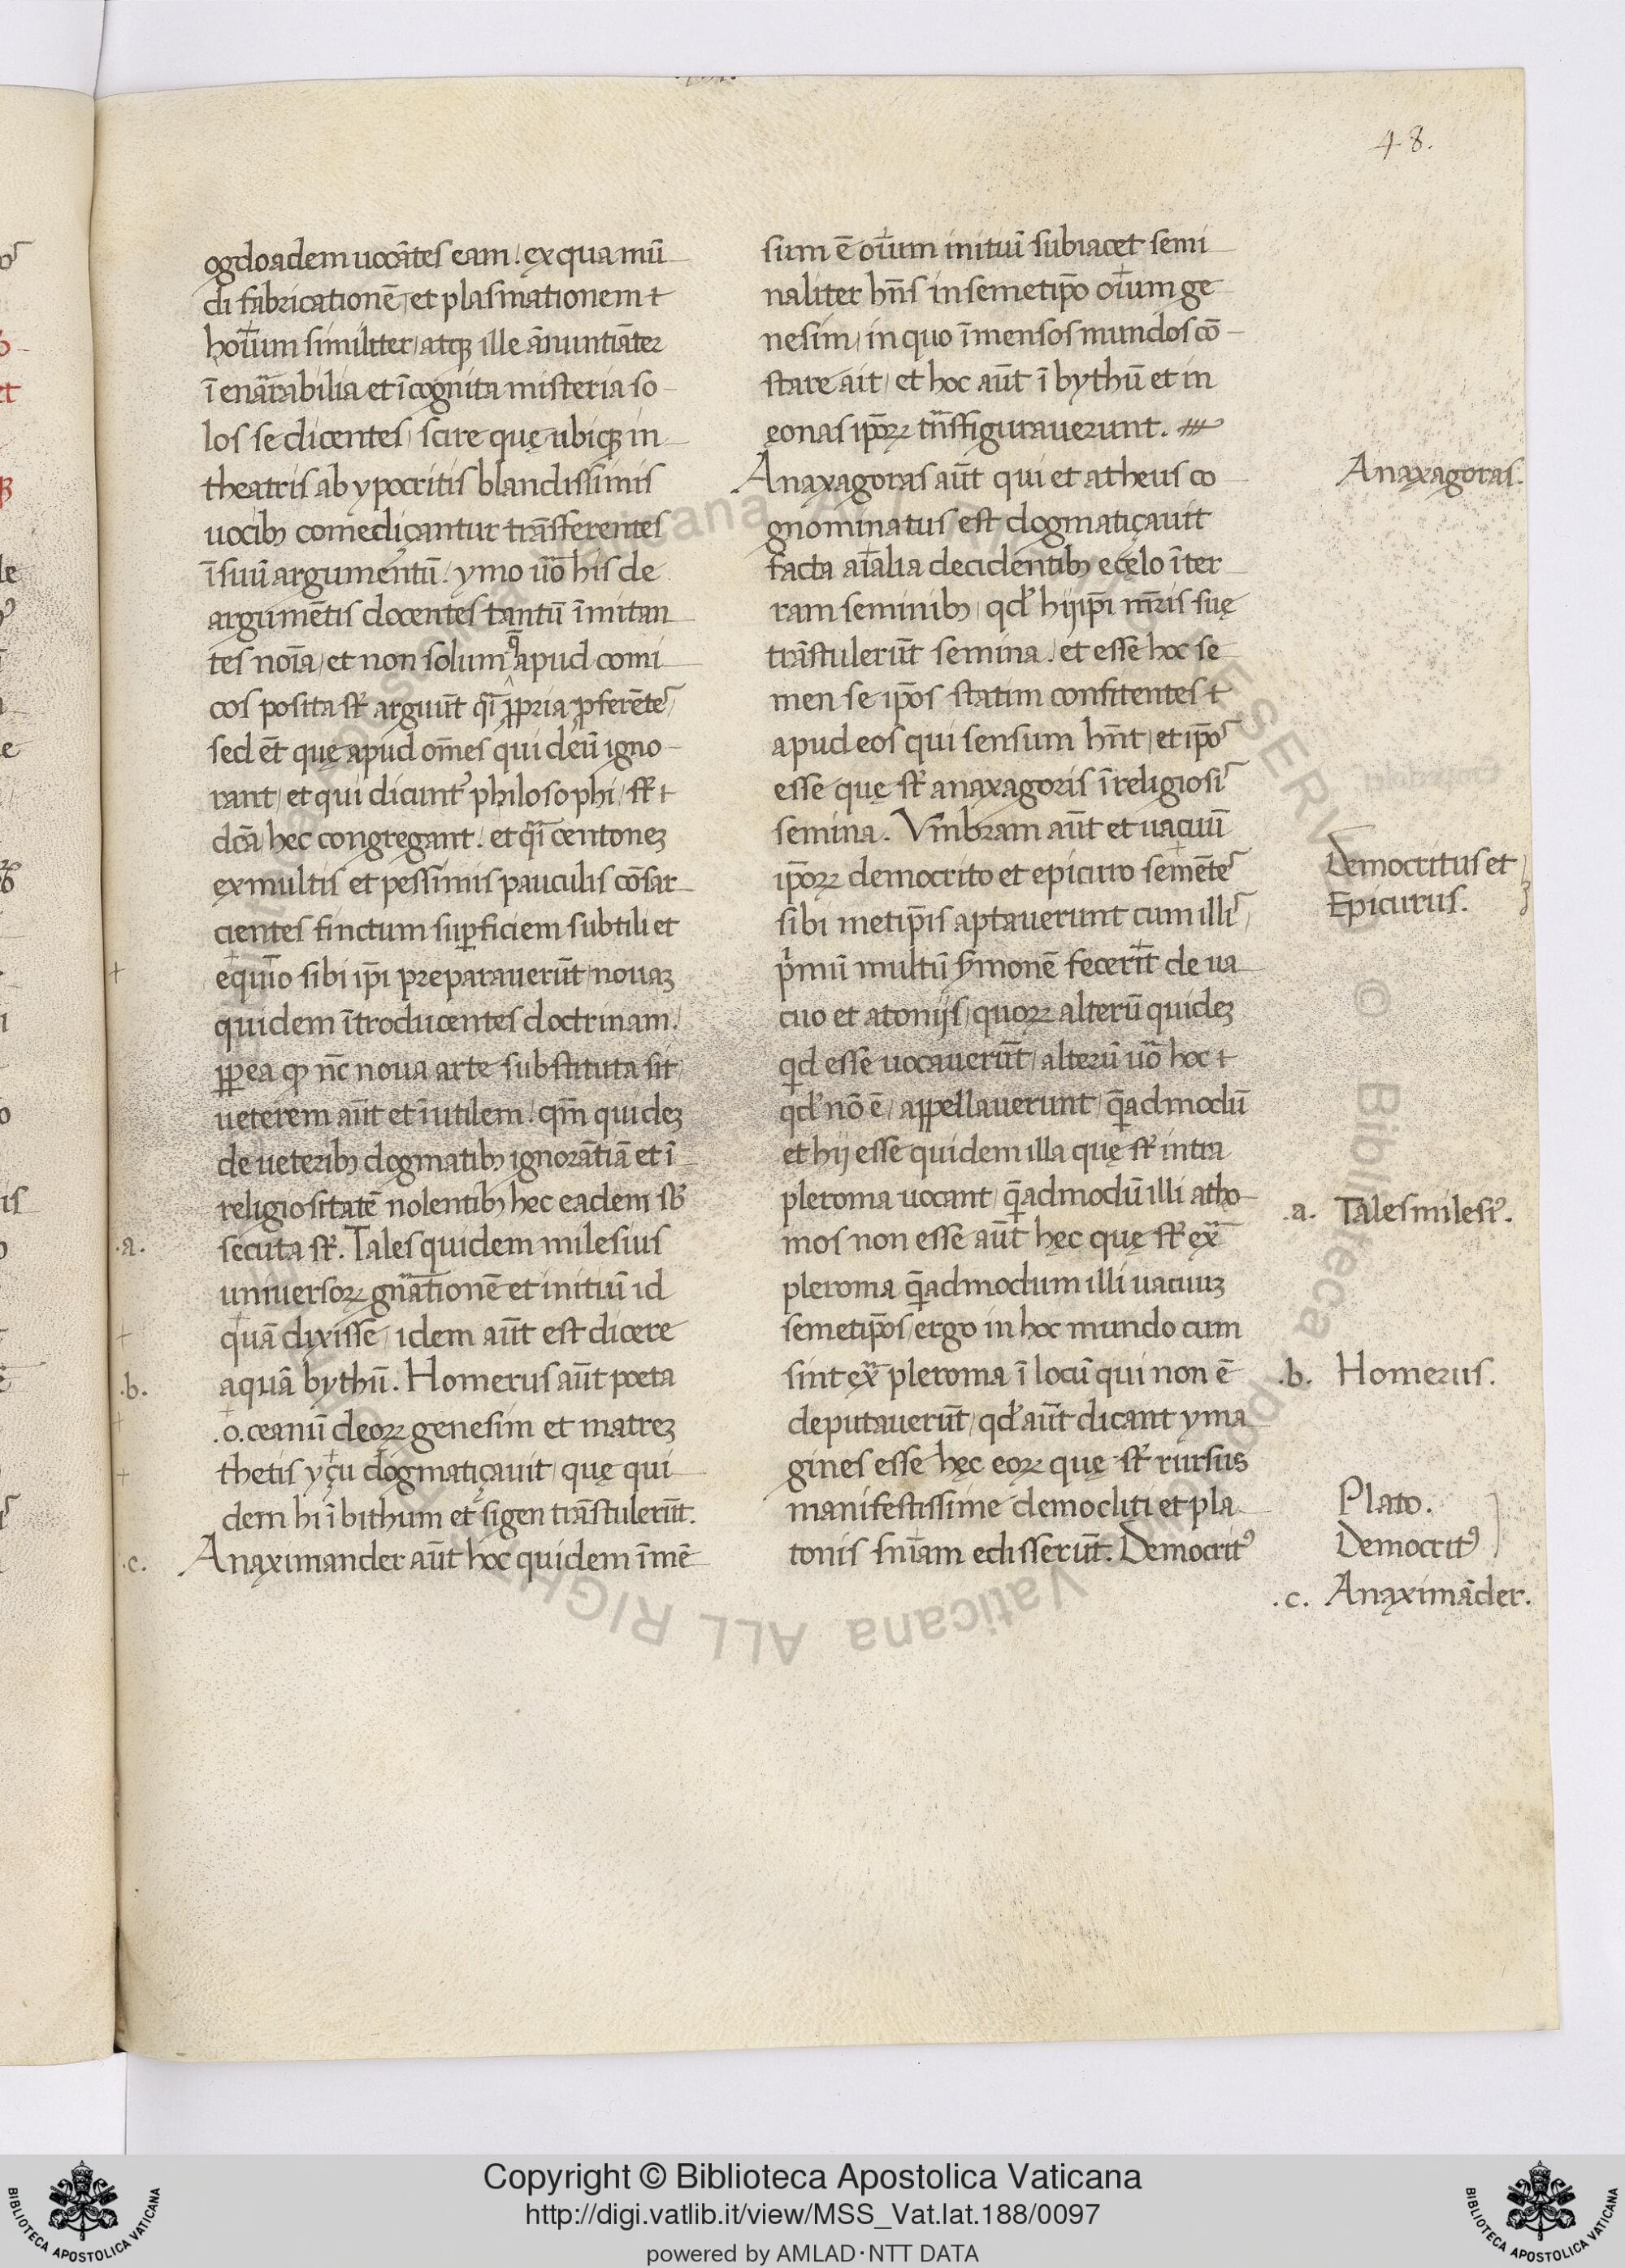 48.
ogdoadem uocātes eam. ex qua mū
di fabricationē et plasmationem
hoīum similiter atqꝫ ille ānuntiāteꝛ
ī enarrabilia et īcognita misteria so
los se dicentes scire quę ubicꝫ in
theatris ab ypocritis blandissimis
uocibꝫ comediçantur trāsferentes
ī suū argumentū. ymo uō his de
argumētis docentes tantū īmitan
tes noīa et non solum q̄ apud comi
cos posita sť arguūt q̄i ꝓpria ꝓferētes
sed eť quę apud om̄es qui deū igno
rant et qui dicunť philosophi sť
dcā hec congregant. et q̄i centoneꝫ
ex multis et pessimis pauculis cōsar
cientes finctum suꝑficiem subtili et
equiuo sibi ip̄i preparauerūt nouaꝫ
quidem ītroducentes doctrinam.
ꝓpea qꝫ nc̄ noua arte substituta sit
ueterem aūt et īutilem. qm̄ quideꝫ
de ueteribꝫ dogmatibꝫ ignorātiā et ī
religiositatē nolentibꝫ hec eadem sb̄
secuta sť. Tales quidem milesius
uniuersoꝝ gnātionē et initiū id
quā dixisse idem aūt est dicere
aquā bythū. Homerus aūt poeta
.o.ceanū deoꝝ genesim et matreꝫ
thetis yçu dogmatiçauit quę qui
dem hi ī bithum et sigen trāstulerūt.
Anaximander aūt hoc quidem īmē
sum ē oīum initiū subiacet semi
naliter hn̄s in semetip̄o oīum ge
nesim in quo īmensos mundos cō
stare ait et hoc aūt ī bythū et in
ęonas ip̄oꝝ trn̄sfigurauerunt.
Anaxagoras aūt qui et atheus co
gnominatus est dogmatiçauit
facta aīalia decidentibꝫ e cęlo īter
ram seminibꝫ qđ hij ip̄i mr̄is suę
trāstulerūt semina. et esse hoc se
men se ip̄os statim confitentes
apud eos qui sensum hn̄t et ip̄os
esse quę sť anaxagoris īreligiosi
semina. Vmbram aūt et uacuū
ip̄oꝝ democrito et epicuro semēte
sibi metip̄is aptauerunt cum illi
p̄mū multū ŝmonē fecerīt de ua
cuo et atomijs quoꝝ alterū quideꝫ
qd esse uocauerūt alterū uō hoc
qđ nō ē appellauerunt q̄admodū
et hij esse quidem illa quę sť intra
pleroma uocant q̄admodū illi atho
mos non esse aūt hęc quę sť ex̄
pleroma q̄admodum illi uacuuꝫ
semetip̄os ergo in hoc mundo cum
sint ex̄ pleroma ī locū qui non ē
deputauerūt qđ aūt dicant yma
gines esse hęc eoꝝ quę sť rursus
manifestissime democliti et pla
tonis sn̄iam edisserūt. Democrit᾽
Anaxagoras.
Democritus et
Epicurus.
.a. Tales milesi᾽.
.b. Homerus.
Plato.
Democrit᾽
.c. Anaximāder.
.a.
.b.
.c.
Copyright © Biblioteca Apostolica Vaticana
http://digi.vatlib.it/view/MSS_Vat.lat.188/0097
powered by AMLAD·NTT DATA
BIBLIOTECA APOSTOLICA VATICANA
BIBLIOTECA APOSTOLICA VATICANA